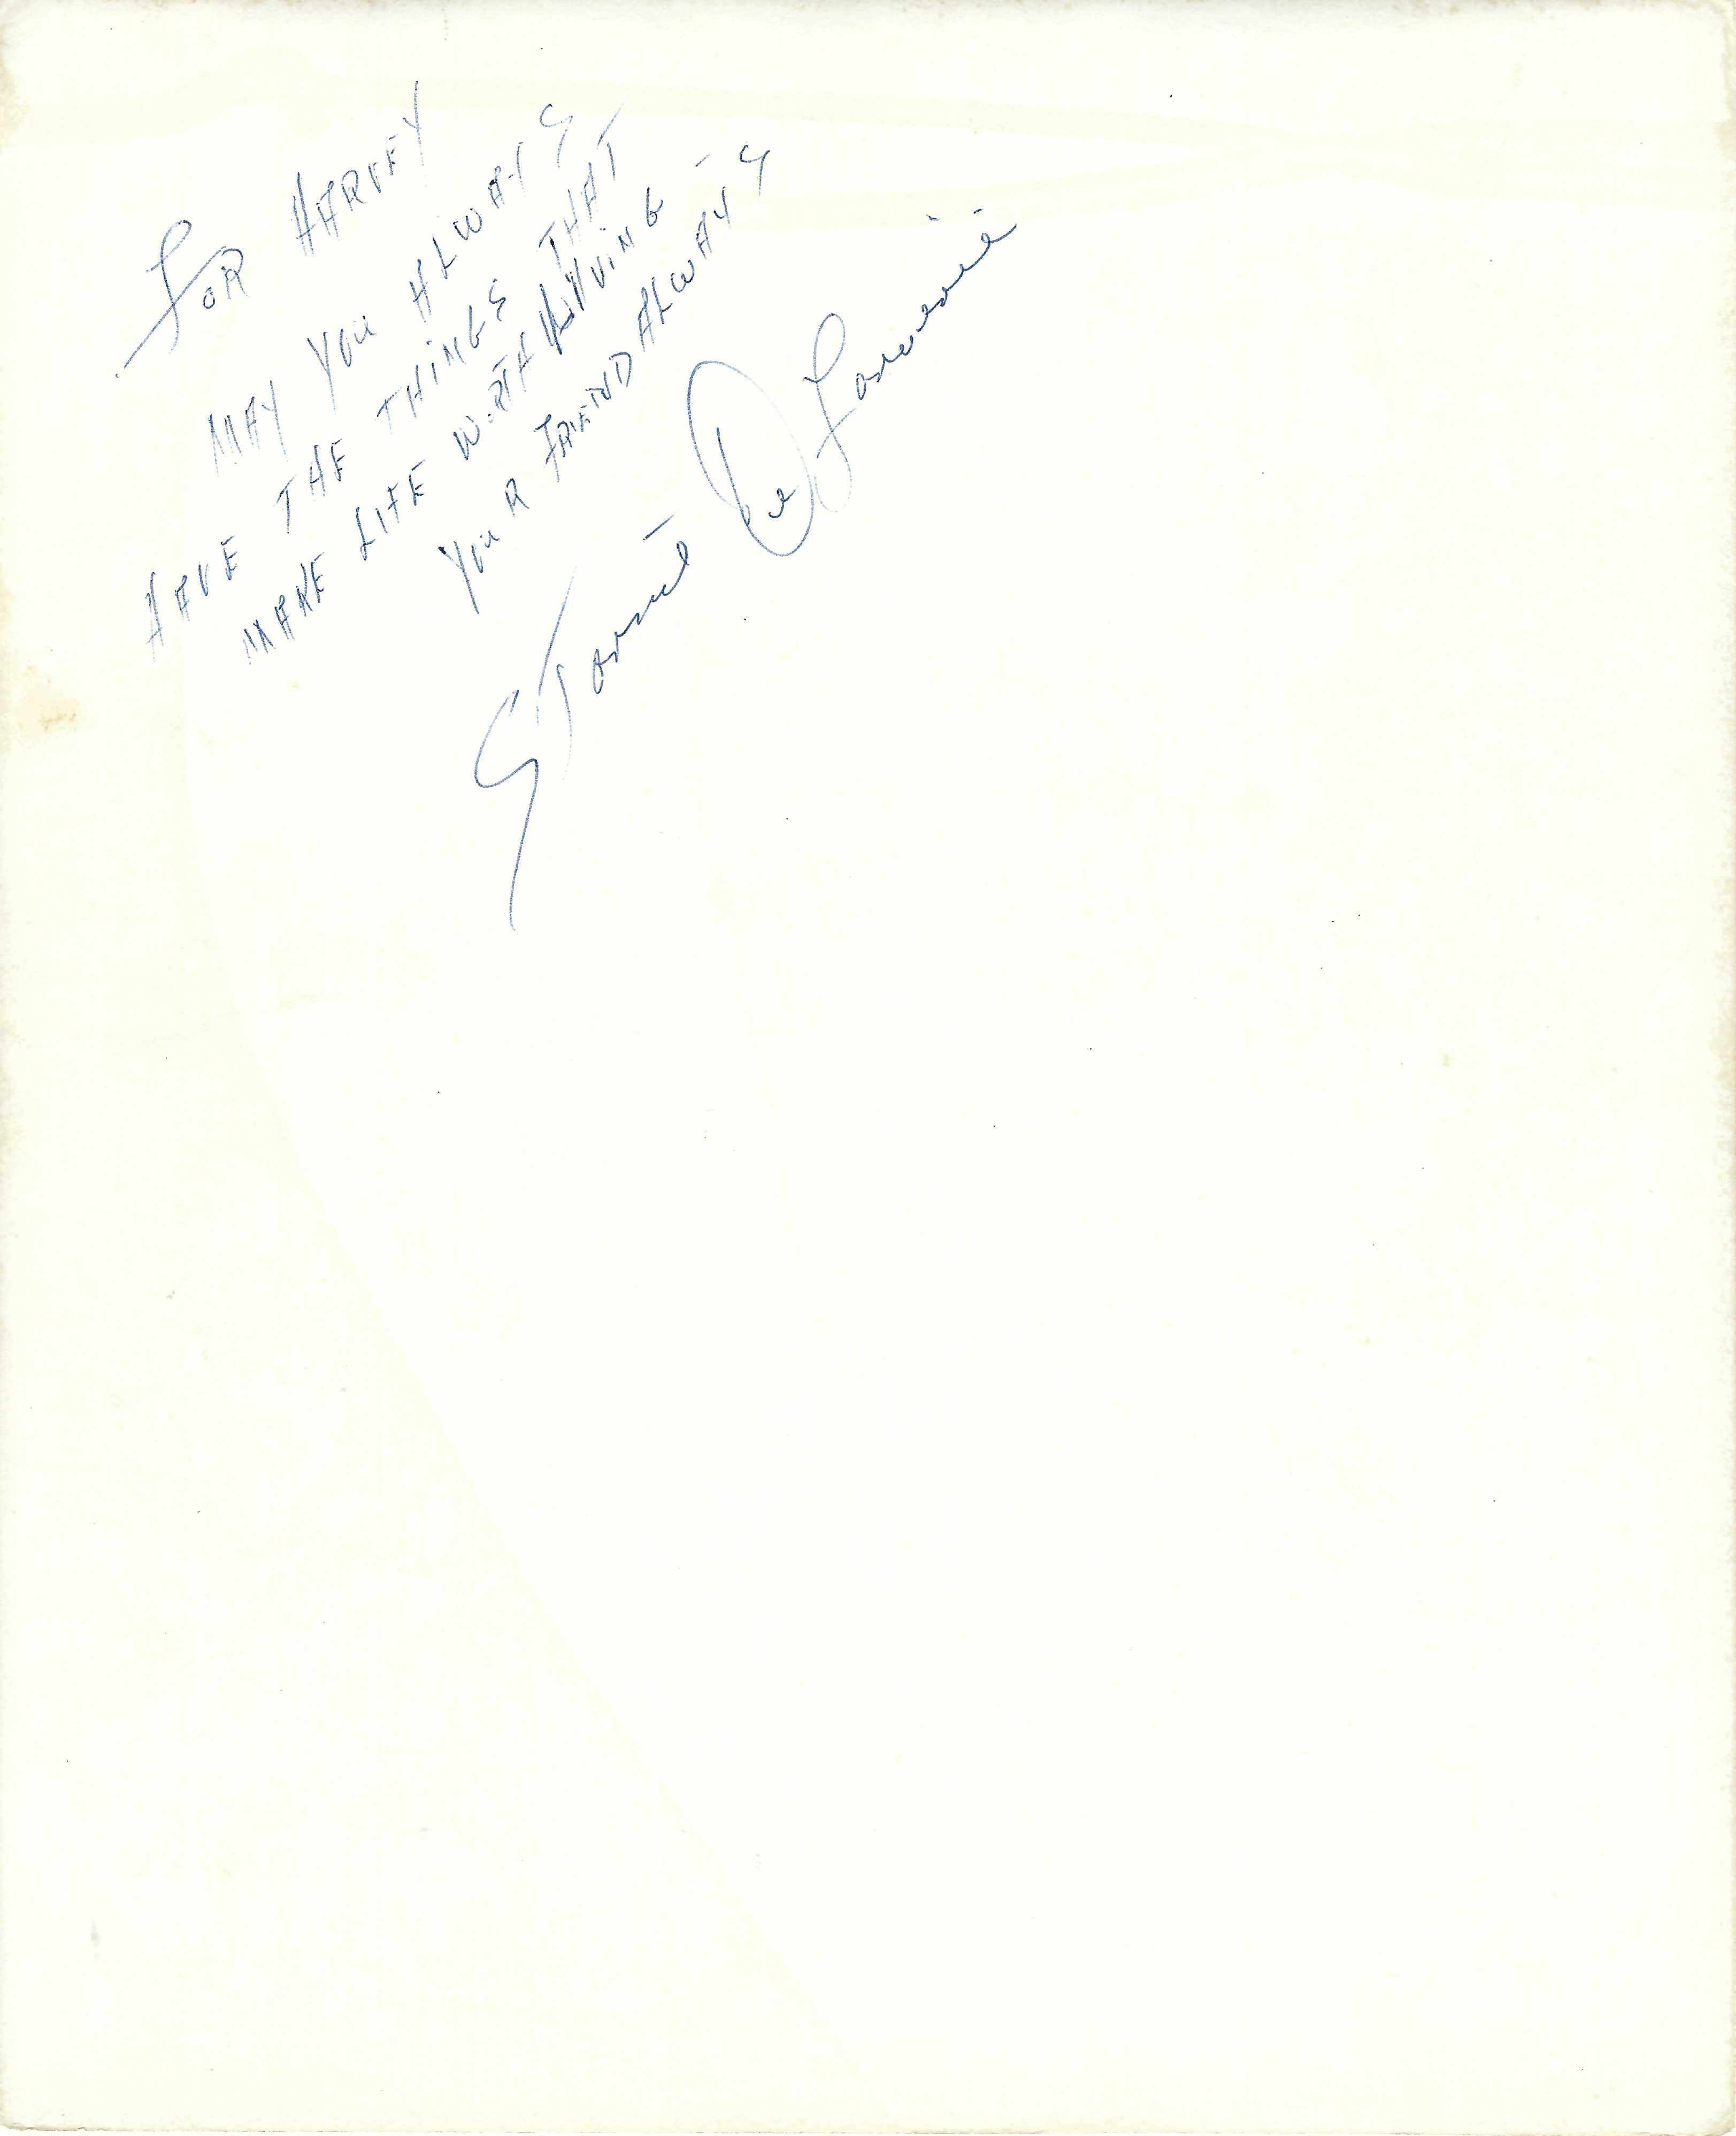 FOR HARVEY
MAY YOU ALWAYS
HAVE THE THINGS THAT
MAKE LIFE WORTH LIVING -
YOUR FRIEND ALWAYS
De